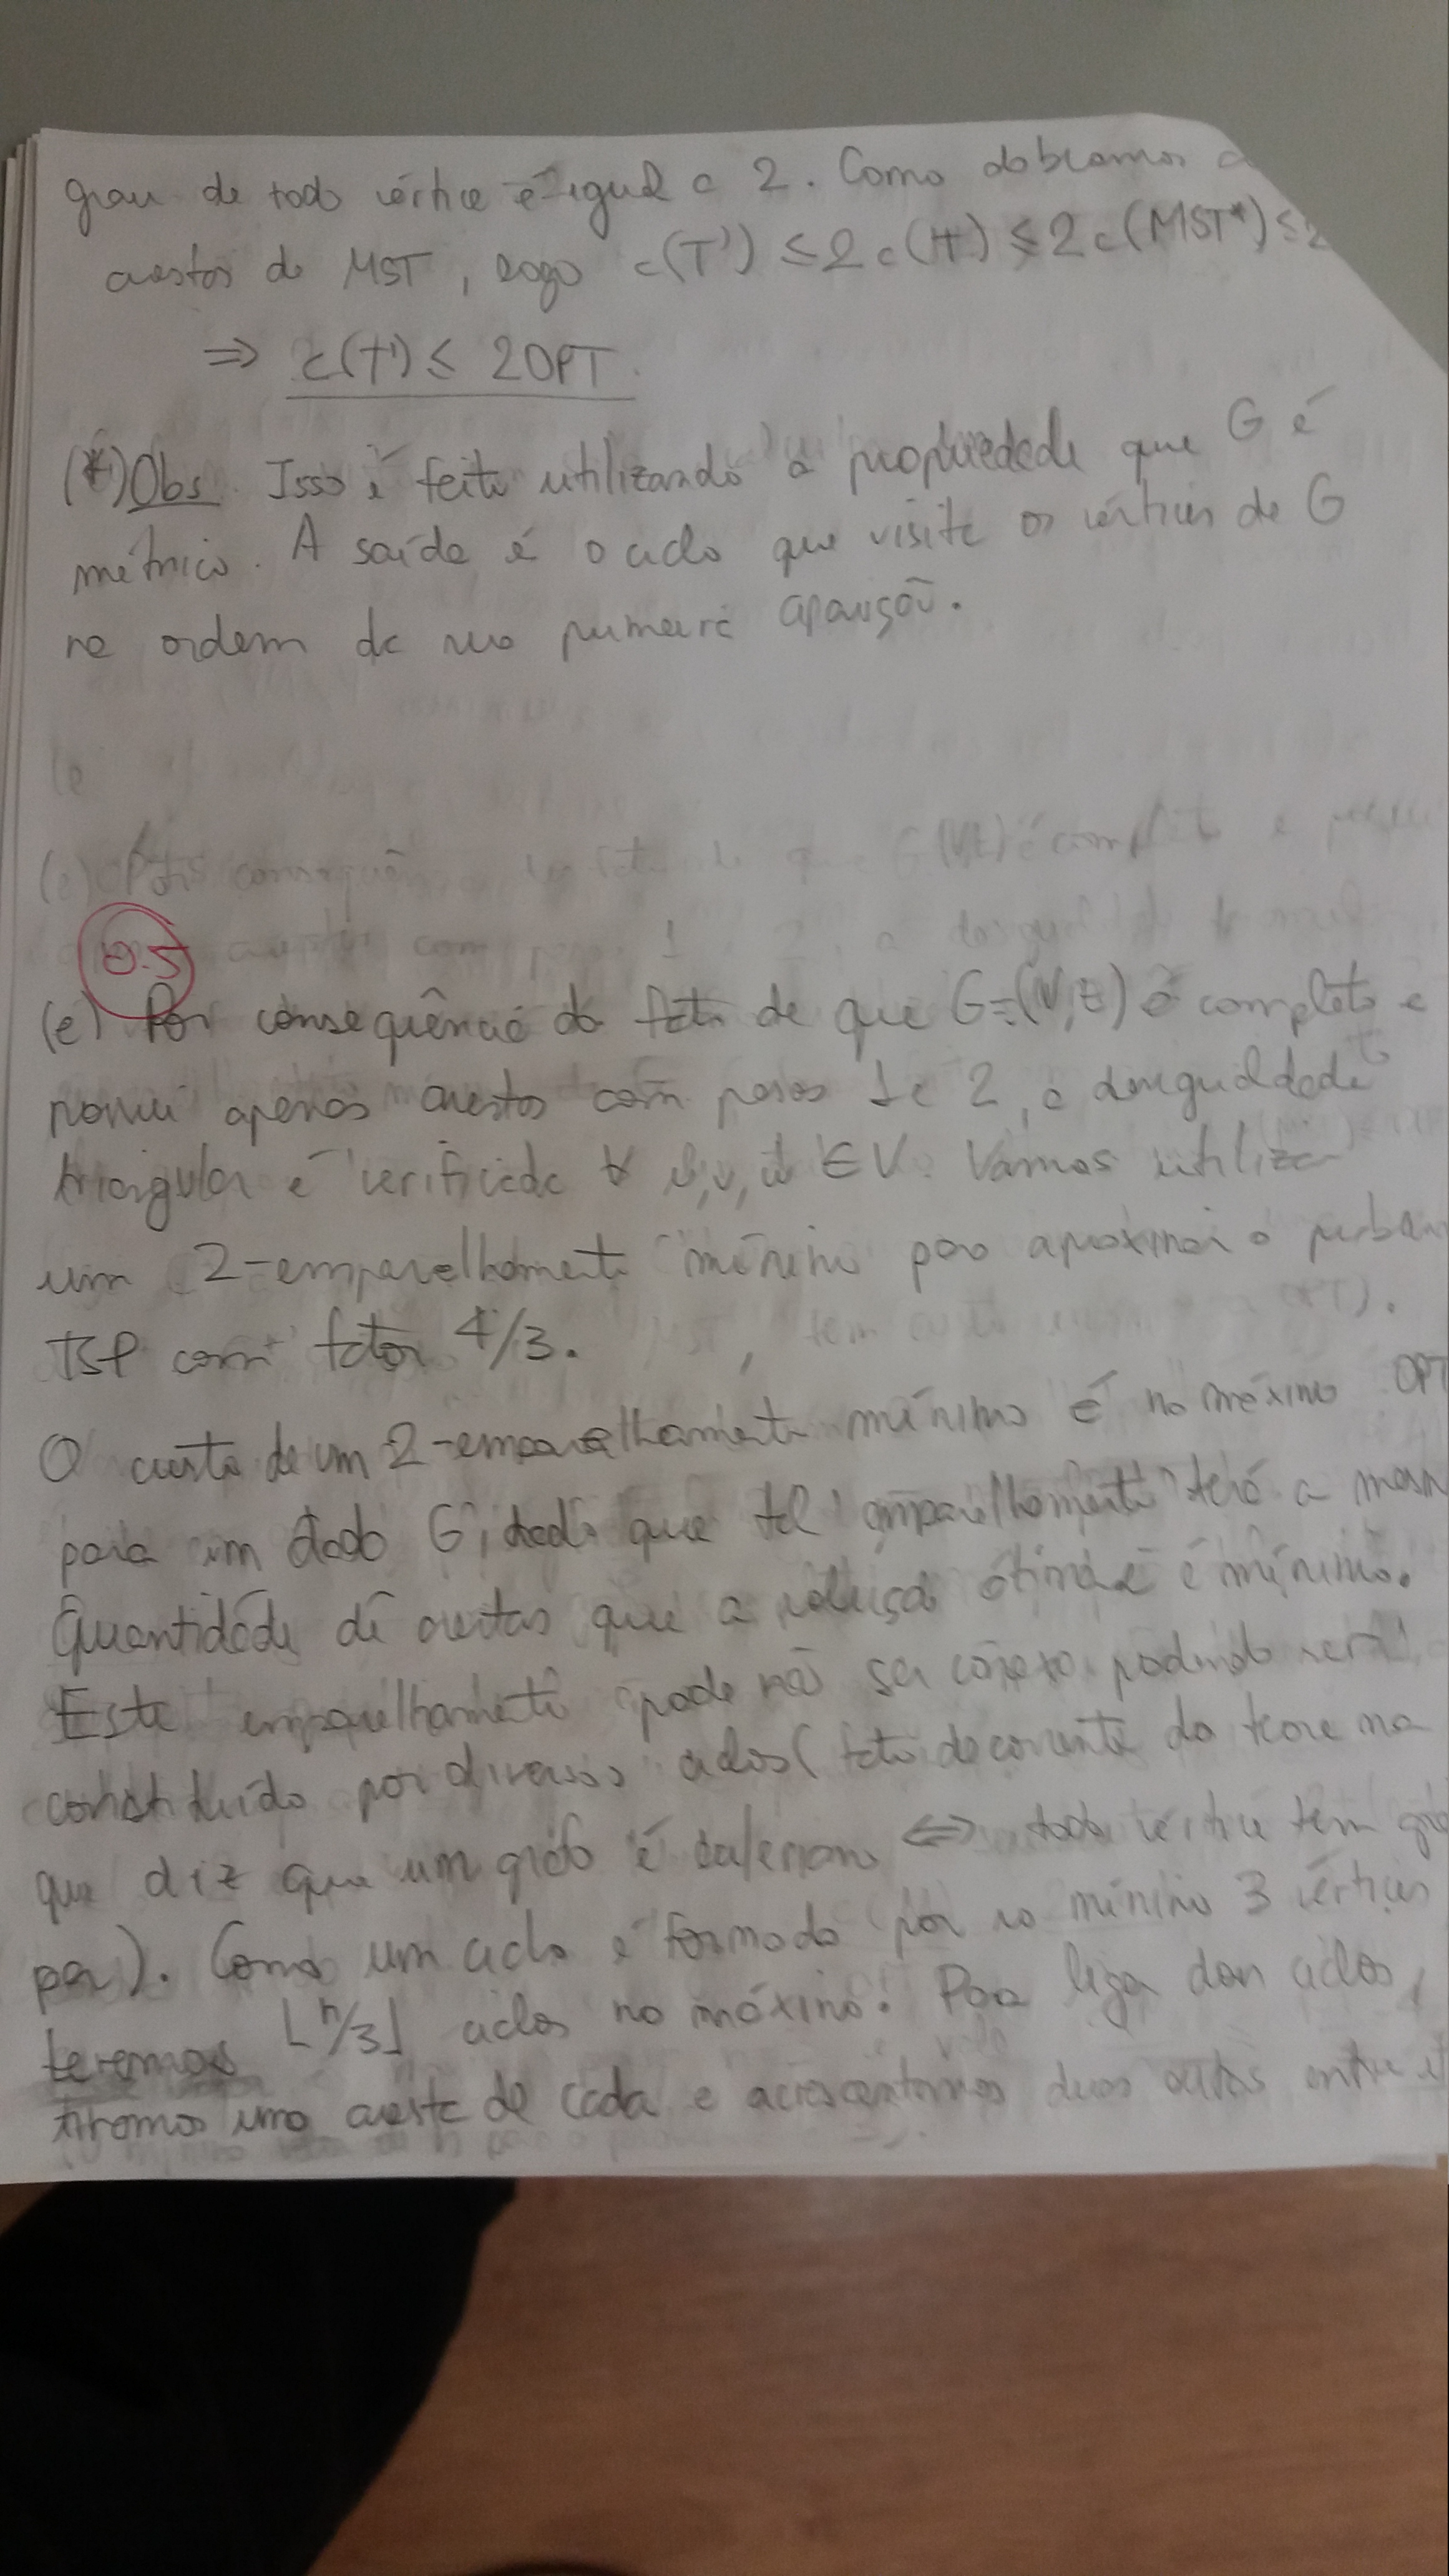 grau de todo vértice é igual a 2. Como dobramos a
arestas do MST, logo c(T') ≤ 2c(H) ≤ 2c(MST*) ≤ 2
⇒ c(T') ≤ 2OPT
(*) Obs. Isso é feito utilizando a propriedade que G é
métrico. A saída é o ciclo que visite os vértices de G
na ordem de sua primeira aparição.
0.5
(e) Por consequência do fato de que G=(V,E) é completo e
possui apenas arestas com pesos 1 e 2, a desigualdade
triangular é verificada ∀ u,v,w ∈ V. Vamos utilizar
um 2-emparelhamento mínimo para aproximar o
TSP com fator 4/3.
O custo de um 2-emparelhamento mínimo é no máximo OPT
para um dado G, dado que tal emparelhamento terá a
quantidade de arestas que a solução ótima e é mínimo.
Este emparelhamento pode não ser conexo podendo ser
constituído por diversos ciclos (fato decorrente do teorema
que diz que um grafo é euleriano ⇔ todo vértice tem
par). Como um ciclo é formado por no mínimo 3 vértices
teremos ⌊n/3⌋ ciclos no máximo! Para ligar dois ciclos,
tiramos uma aresta de cada e acrescentamos duas outras entre